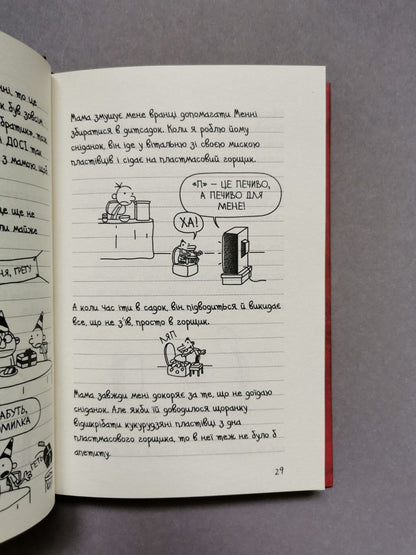 нні, то це
к був зовсім
братик», тож
І ДОСІ так
з мамою, щой
це ще не
ли майже
НЯ, ГРЕГУ
АБУТЬ,
МИЛКА
Мама змушує мене вранці допомагати Менні
збиратися в дитсадок. Коли я роблю йому
сніданок, він іде у вітальню зі своєю мискою
пластівців і сідає на пластмасовий горщик.
«П» — ЦЕ ПЕЧИВО,
А ПЕЧИВО ДЛЯ
МЕНЕ!
ХА!
А коли час іти в садок, він підводиться й викидає
все, що не з'їв, просто в горщик.
ЛЯП
Мама завжди мені докоряє за те, що не доїдаю
сніданок. Але якби їй доводилося щоранку
відшкрібати кукурудзяні пластівці з дна
пластмасового горщика, то в неї теж не було б
апетиту.
29